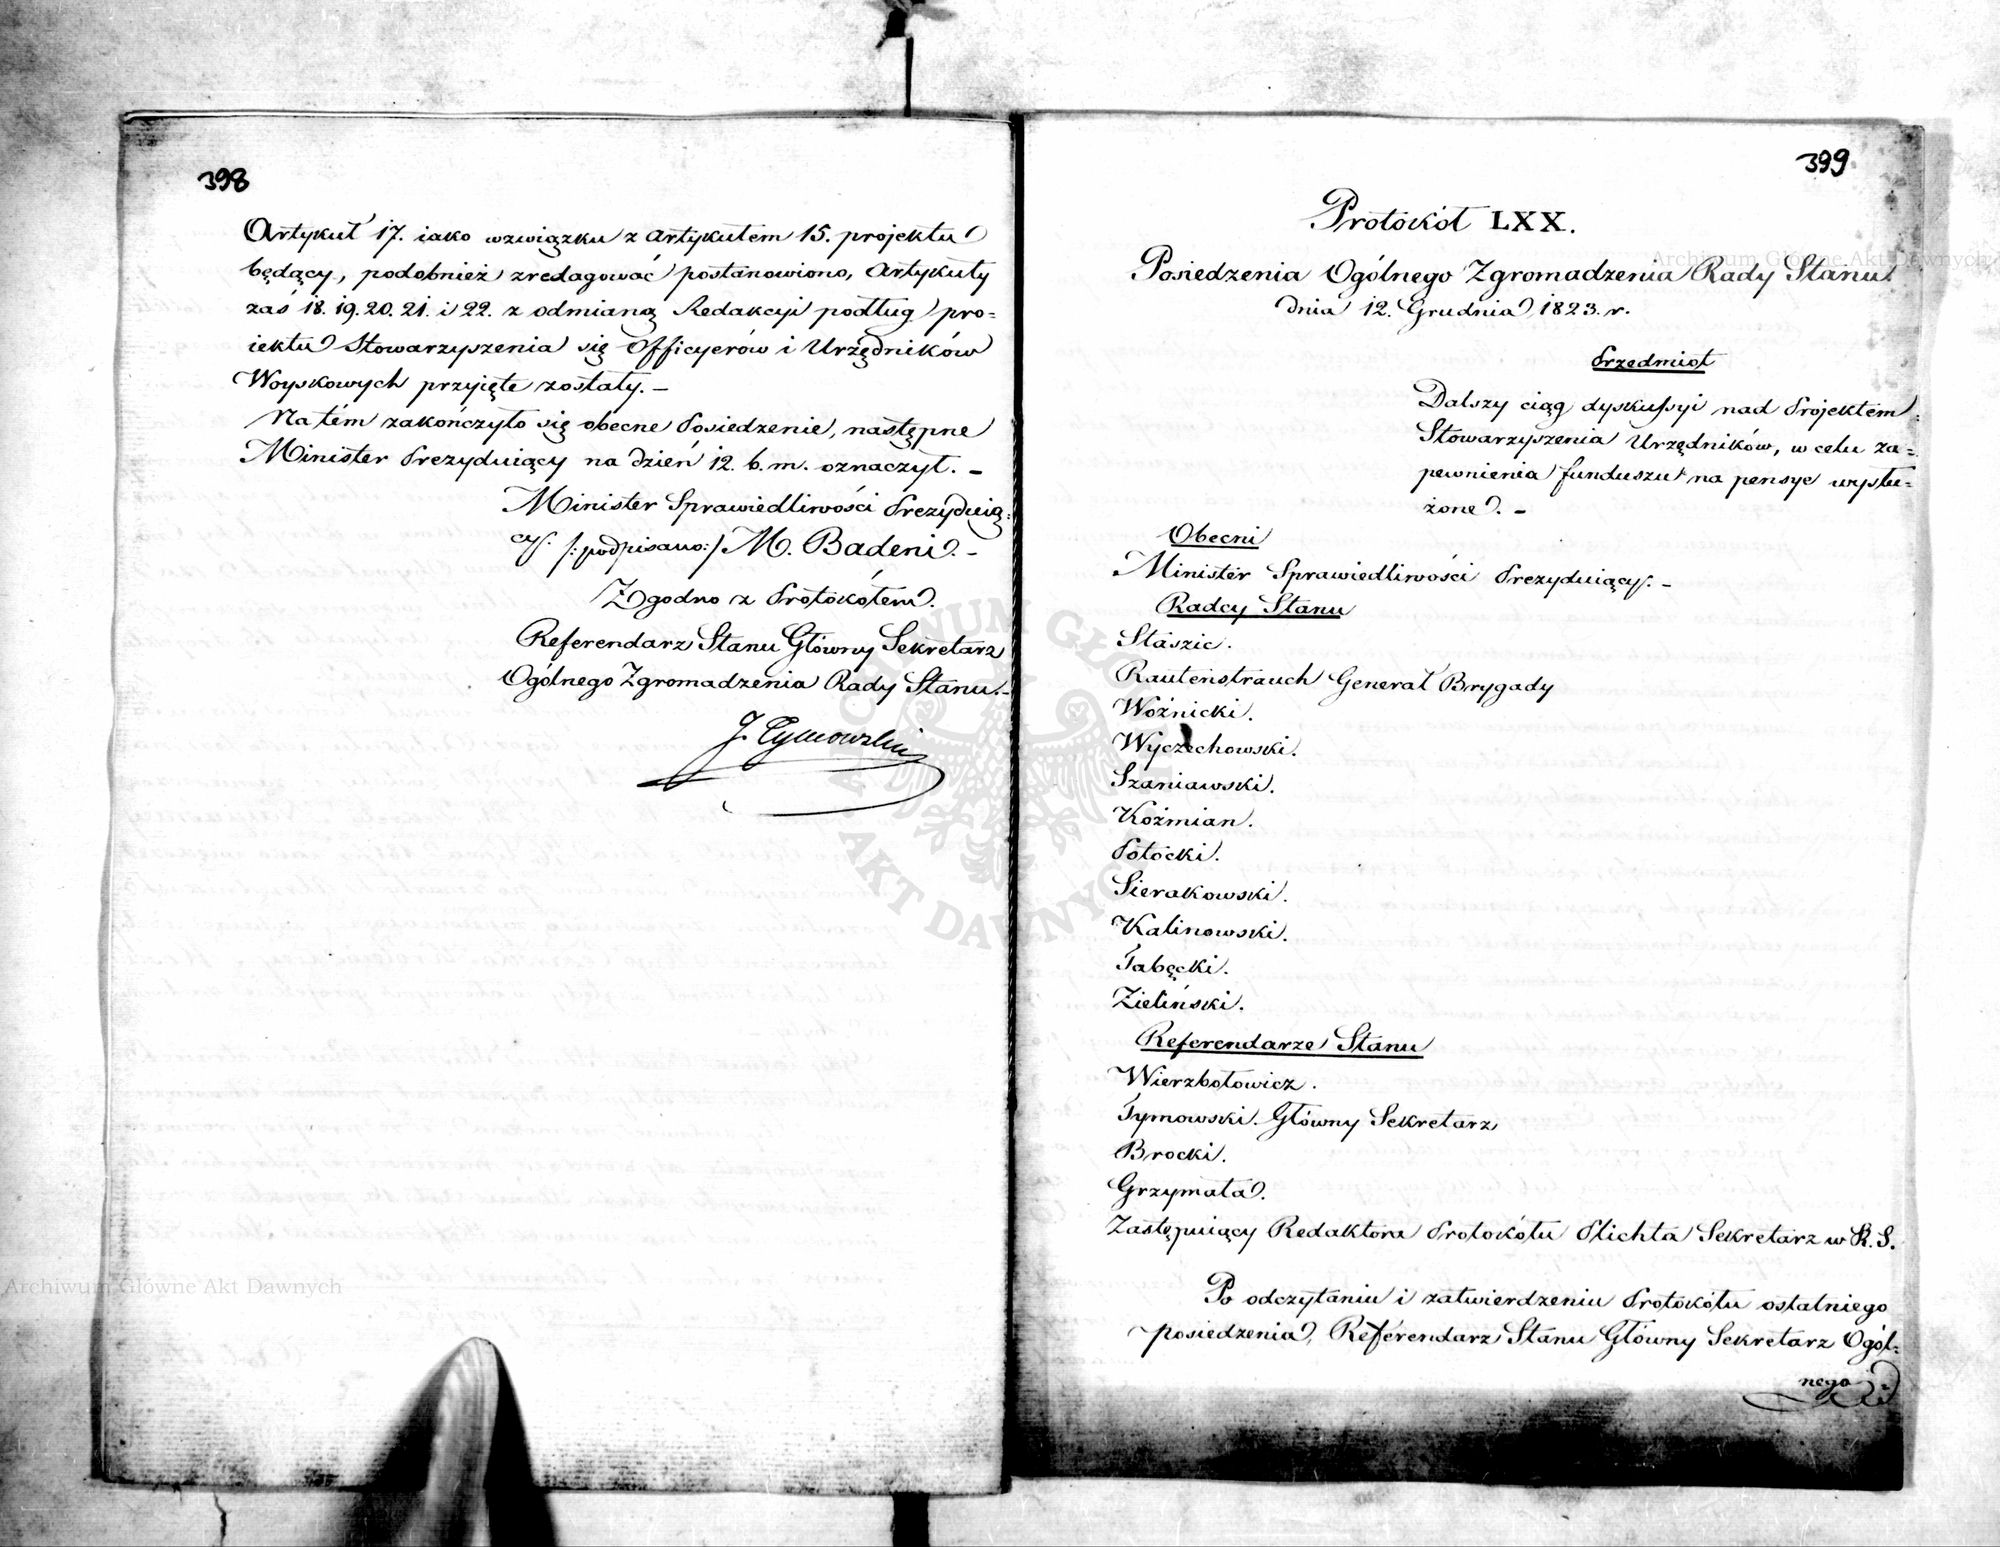 398
Artykuł 17. iako wzwiązku z artykułem 15. projektu
będący, podobnież zredagować postanowiono, Artykuły
zaś 18. 19. 20. 21. i 22. z odmianą Redakcyi podług pro=
iektu Stowarzyszenia się Officyerów i Urzędników
Woyskowych przyięte zostały. –
Na tém zakończyło się obecne Posiedzenie, następne
Minister Prezyduiący na dzień 12. b. m. oznaczył. –
Minister Sprawiedliwości Prezyduią=
cy. /:podpisano:/ M. Badeni. –
Zgodno z Protokółem.
Referendarz Stanu Główny Sekretarz
Ogólnego Zgromadzenia Rady Stanu. –
J. Tymowski
399
Protokół LXX.
Posiedzenia Ogólnego Zgromadzenia Rady Stanu.
dnia 12. Grudnia 1823. r.
Przedmiot
Dalszy ciąg dyskussyi nad Projektem
Stowarzyszenia Urzędników, w celu za=
pewnienia funduszu na pensye wysłu=
żone. –
Obecni
Minister Sprawiedliwości Prezyduiący. –
Radcy Stanu
Stászic.
Rautenstrauch Generał Brygady
Woźnicki.
Wyczechowski.
Szaniawski.
Koźmian.
Potocki.
Sierakowski.
Kalinowski.
Tabęcki.
Zieliński.
Referendarze Stanu
Wierzbołowicz.
Tymowski. Główny Sekretarz
Brocki.
Grzymała.
Zastępuiący Redaktora Protokółu Plichta Sekretarz w R. S.
Po odczytaniu i zatwierdzeniu Protokółu ostatniego
posiedzenia, Referendarz Stanu Główny Sekretarz Ogól=
nego
Archiwum Główne Akt Dawnych
Archiwum Główne Akt Dawnych
ARCHIWUM GŁÓWNE AKT DAWNYCH